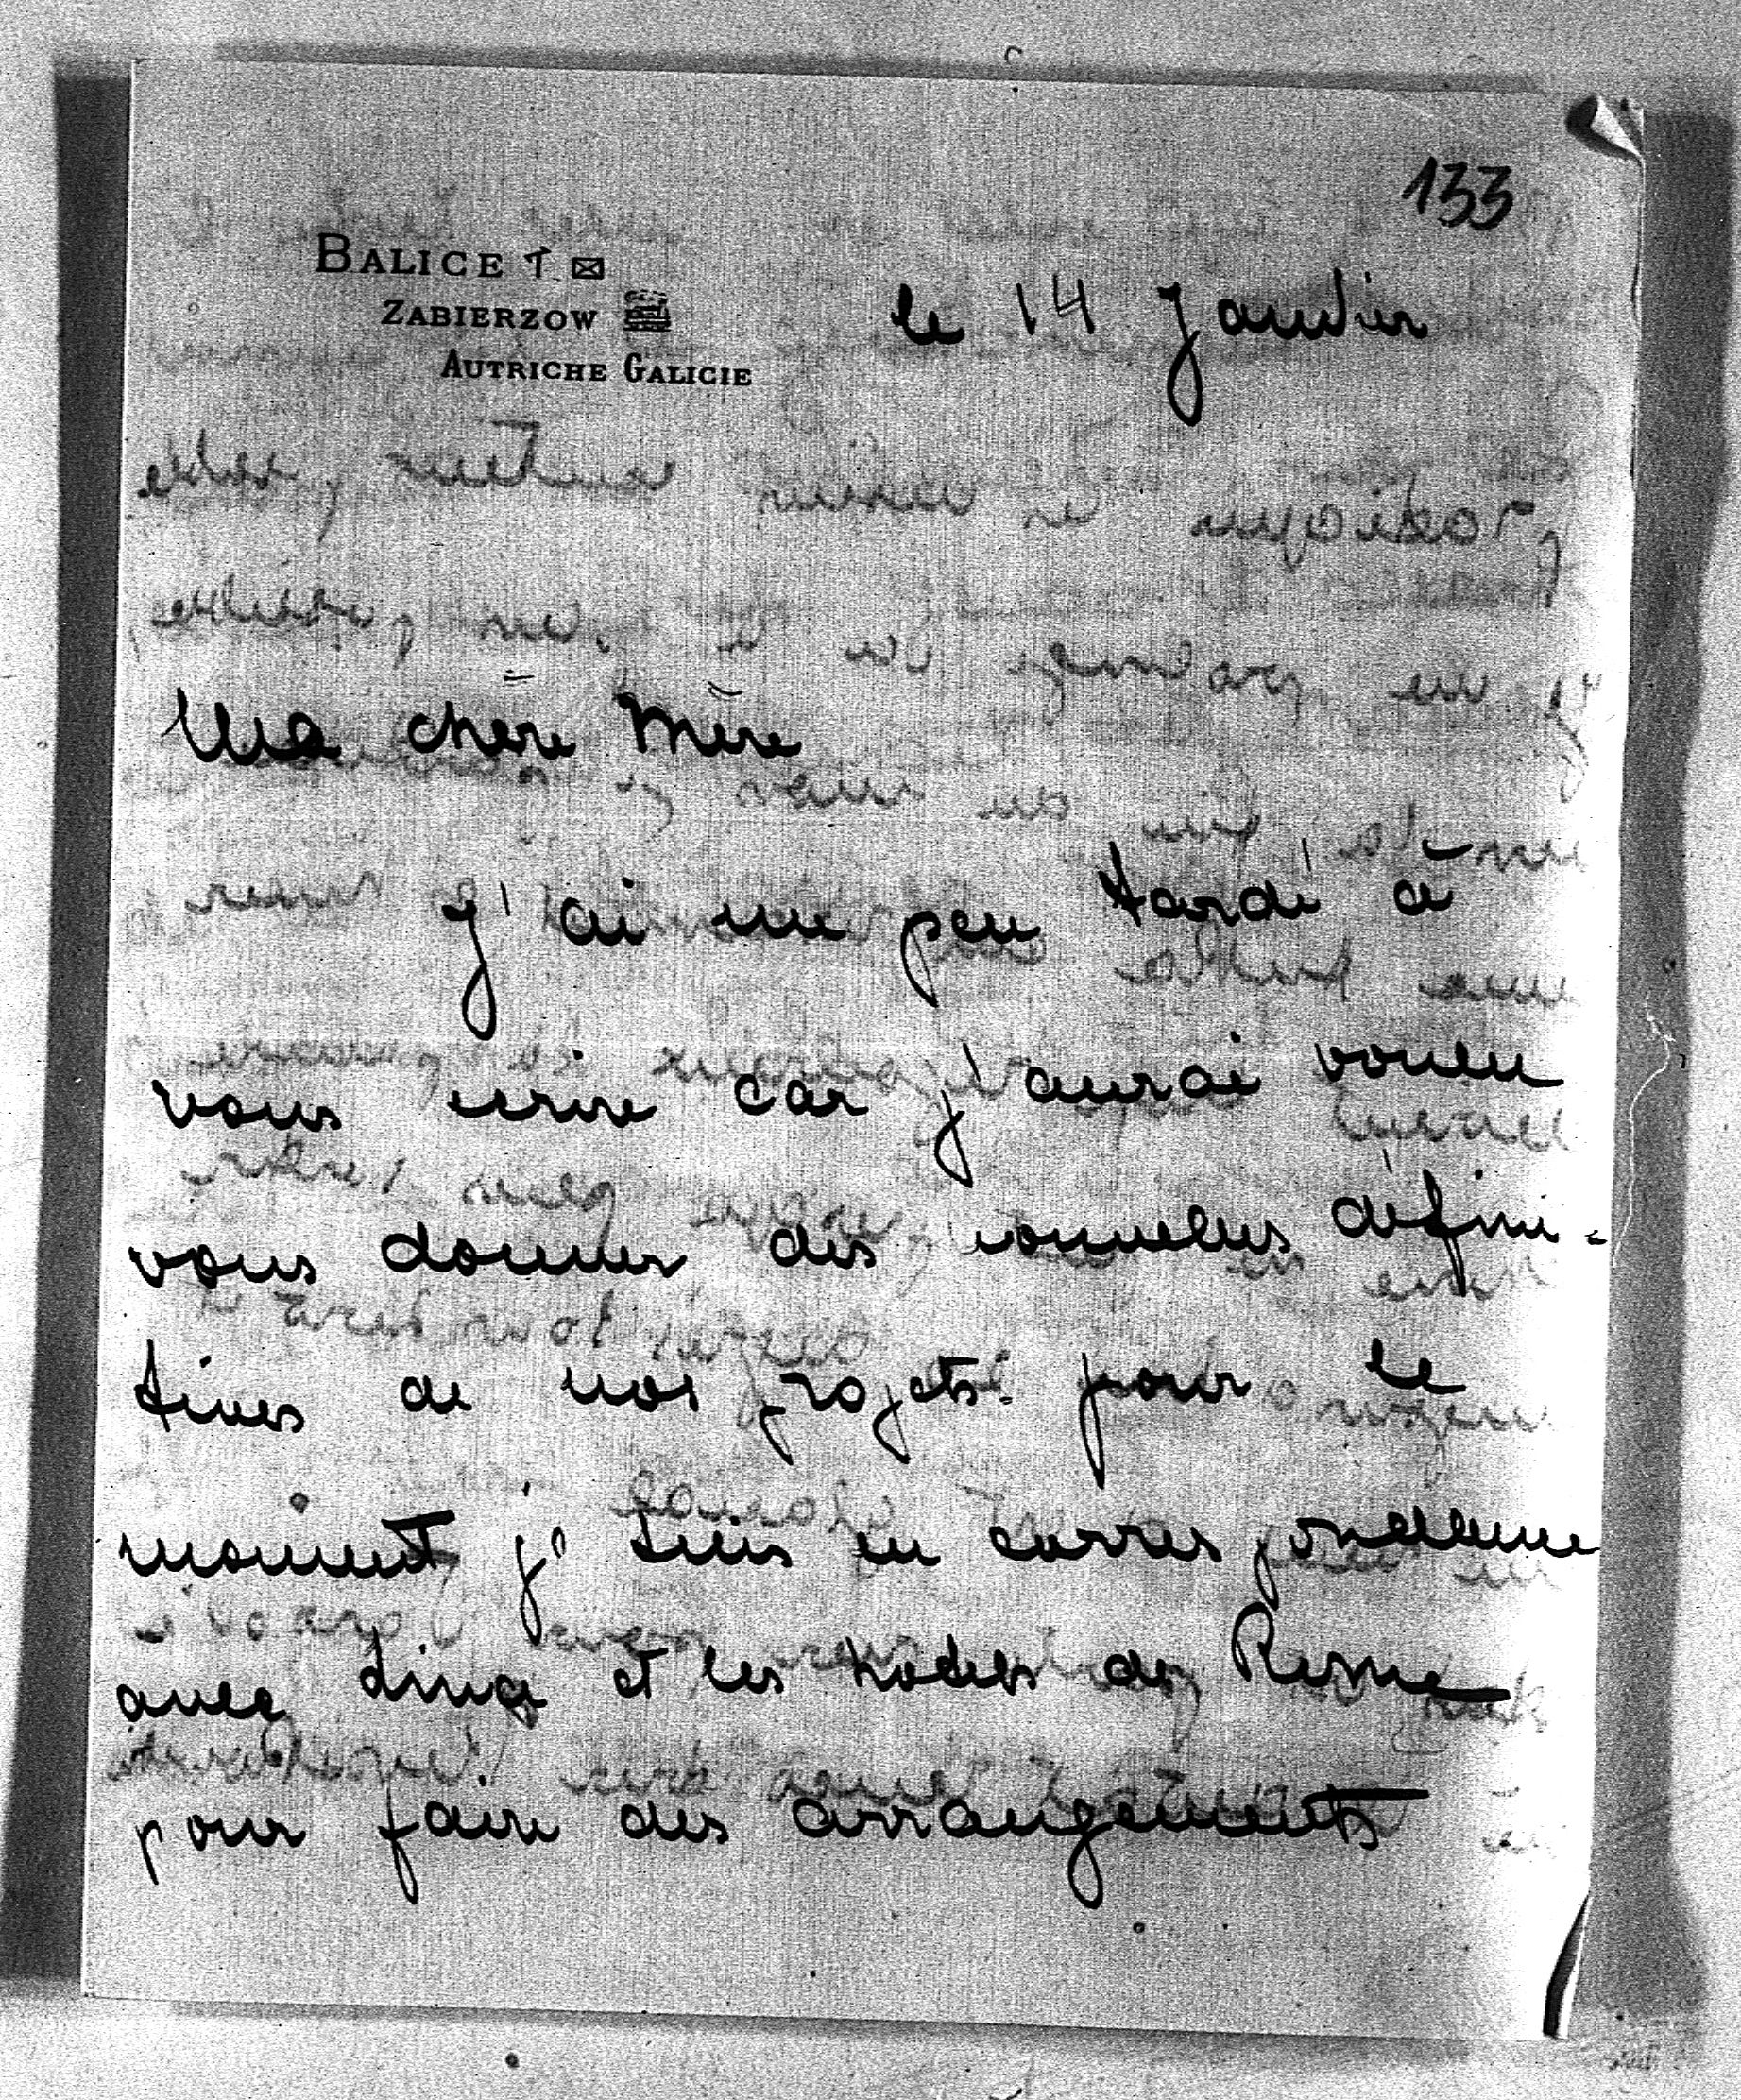 133
BALICE T
ZABIERZOW
AUTRICHE GALICIE
le 14 Janvier
Ma chère Mère
J'ai un peu tardé à
vous ecrire car j'aurai voulu
vous donner des nouvelles défini-
tives de nos projets. pour le
moment je suis en correspondance
avec et les hotels de Rome
pour faire des arrangements